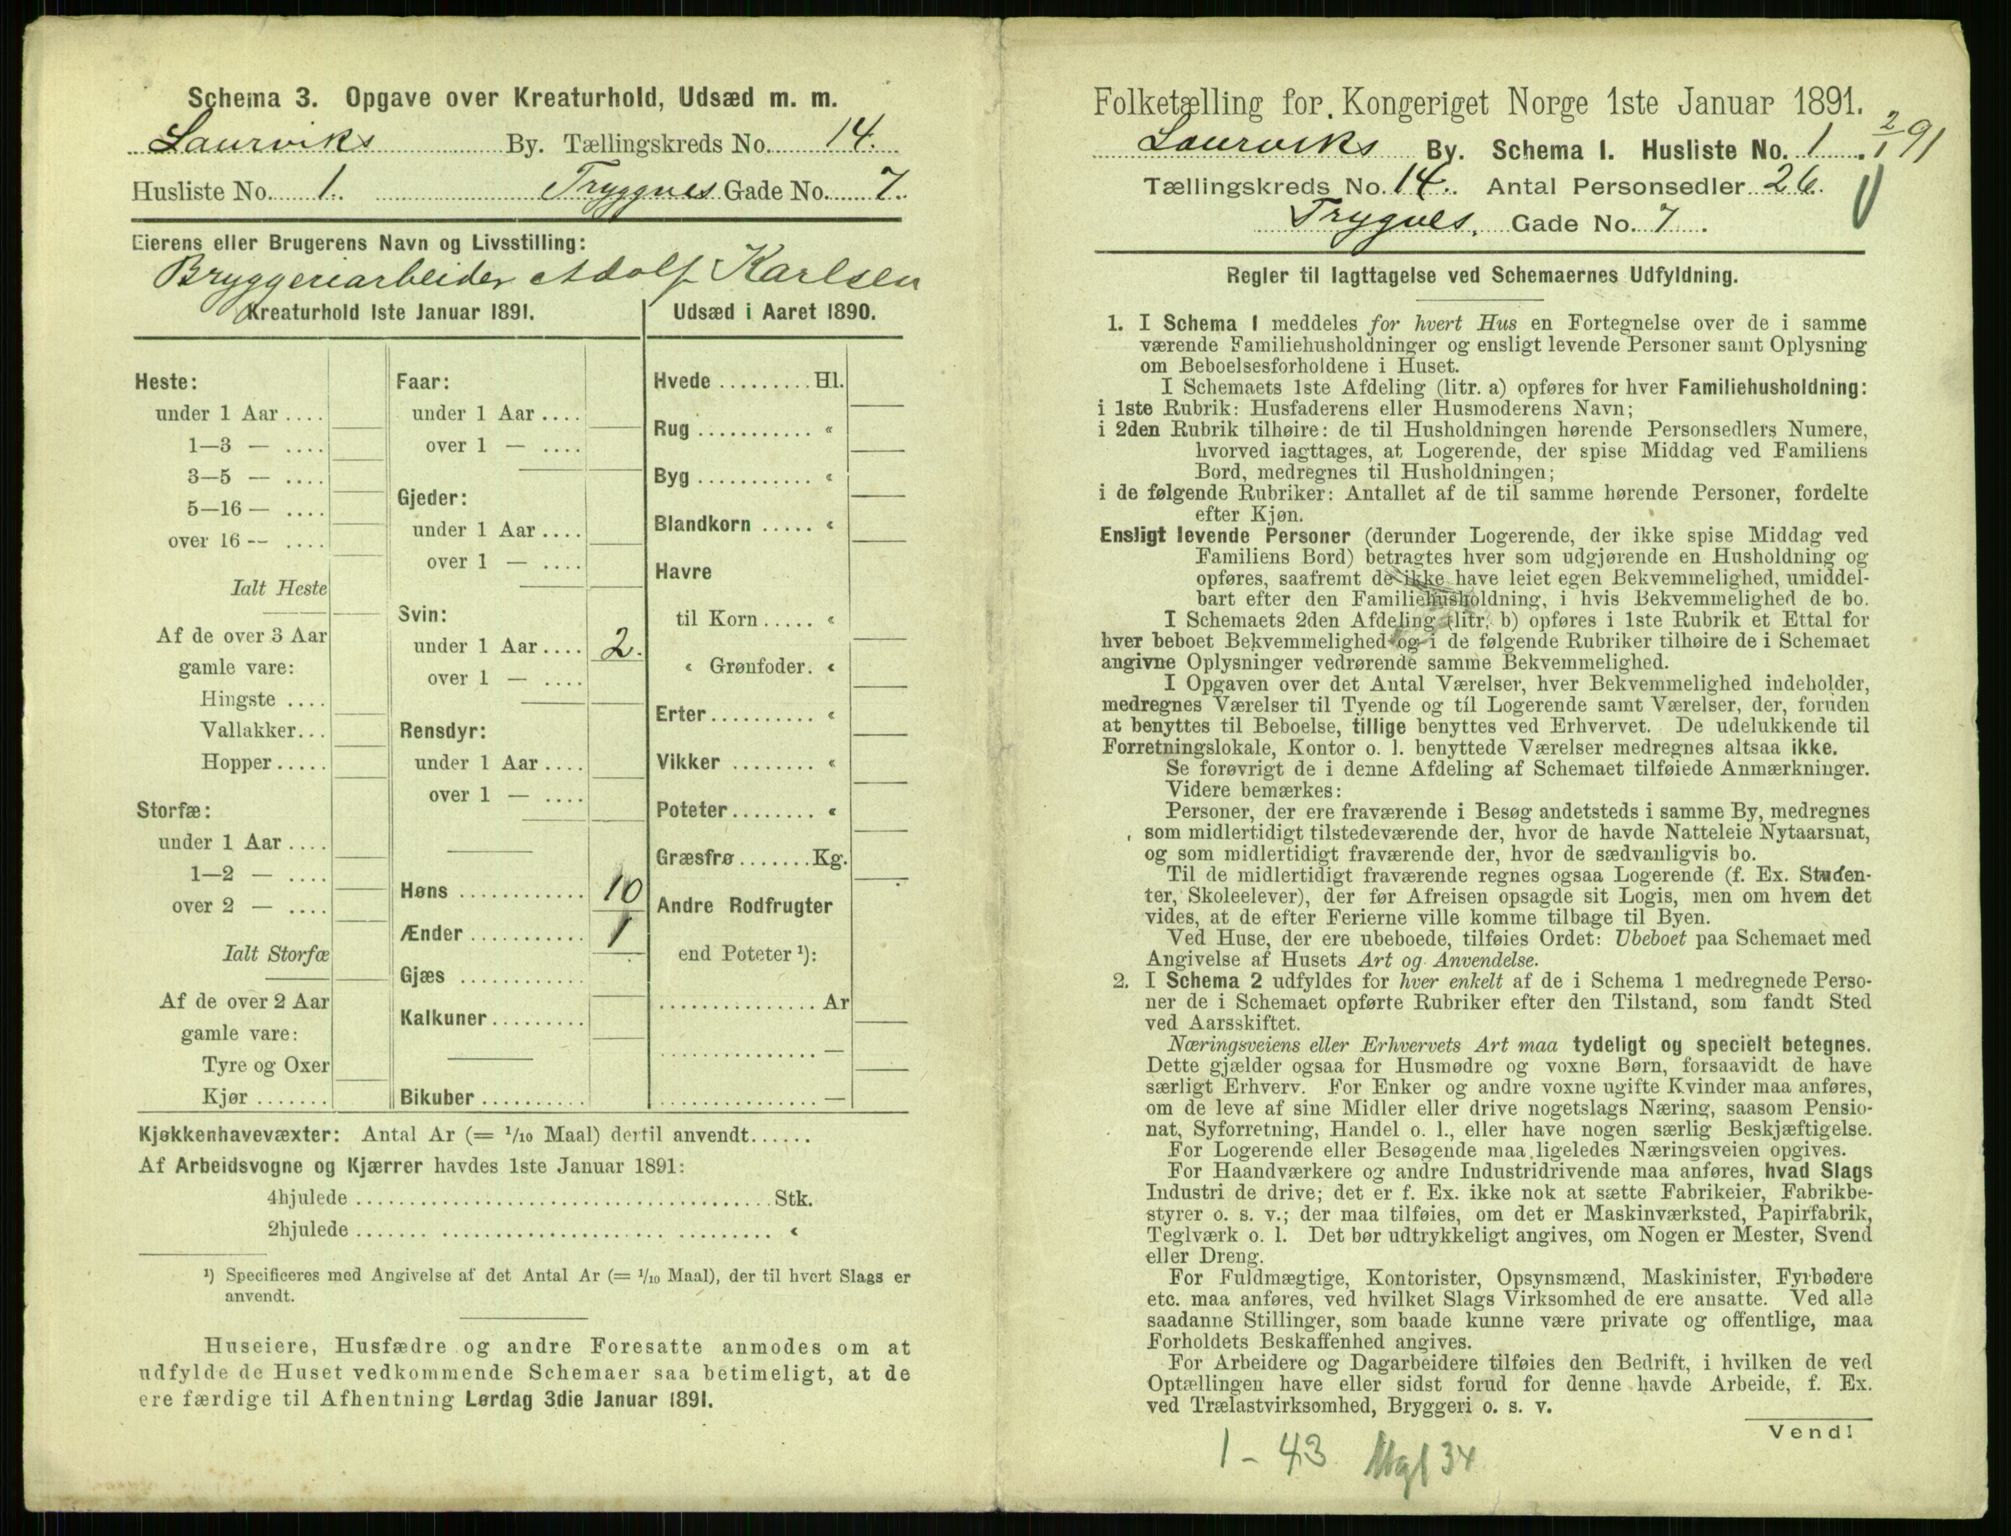 Schema 3. Opgave over Kreaturhold, Udsæd m. m.
Laurviks By. Tællingskreds No. 14.
Husliste No. 1. Tryggves Gade No. 7.
Eierens eller Brugerens Navn og Livsstilling:
Bryggeriarbeider Adolf Karlsen
Kreaturhold 1ste Januar 1891.
Heste:
under 1 Aar ....
1—3 — ....
3—5 — ....
5—16 — ....
over 16 -- ....
Ialt Heste
Af de over 3 Aar
gamle vare:
Hingste ....
Vallakker...
Hopper.....
Storfæ:
under 1 Aar ....
1—2 — ....
over 2 — ....
Ialt Storfæ
Af de over 2 Aar
gamle vare:
Tyre og Oxer
Kjør .......
Faar:
under 1 Aar ....
over 1 — ....
Gjeder:
under 1 Aar ....
over 1 — ....
Svin:
under 1 Aar .... 2.
over 1 — ....
Rensdyr:
under 1 Aar ....
over 1 — ....
Høns ........... 10
Ænder ........... 1
Gjæs ............
Kalkuner.........
Bikuber ..........
Udsæd i Aaret 1890.
Hvede ......... Hl.
Rug ........... «
Byg ........... «
Blandkorn ..... «
Havre
til Korn ..... «
« Grønfoder. «
Erter.......... «
Vikker ........ «
Poteter........ «
Græsfrø.......Kg.
Andre Rodfrugter
end Poteter ¹):
............... Ar
............... —
............... —
Kjøkkenhavevæxter: Antal Ar (= 1/10 Maal) dertil anvendt......
Af Arbeidsvogne og Kjærrer havdes 1ste Januar 1891:
4hjulede ........................................ Stk.
2hjulede ........................................ «
¹) Specificeres med Angivelse af det Antal Ar (= 1/10 Maal), der til hvert Slags er
anvendt.
Huseiere, Husfædre og andre Foresatte anmodes om at
udfylde de Huset vedkommende Schemaer saa betimeligt, at de
ere færdige til Afhentning Lørdag 3die Januar 1891.
Folketælling for Kongeriget Norge 1ste Januar 1891.
Laurviks By. Schema I. Husliste No. 1. 2/1 91
Tællingskreds No. 14. Antal Personsedler 26.
Trygves. Gade No. 7.
Regler til Iagttagelse ved Schemaernes Udfyldning.
1. I Schema 1 meddeles for hvert Hus en Fortegnelse over de i samme
værende Familiehusholdninger og ensligt levende Personer samt Oplysning
om Beboelsesforholdene i Huset.
I Schemaets 1ste Afdeling (litr. a) opføres for hver Familiehusholdning:
i 1ste Rubrik: Husfaderens eller Husmoderens Navn;
i 2den Rubrik tilhøire: de til Husholdningen hørende Personsedlers Numere,
hvorved iagttages, at Logerende, der spise Middag ved Familiens
Bord, medregnes til Husholdningen;
i de følgende Rubriker: Antallet af de til samme hørende Personer, fordelte
efter Kjøn.
Ensligt levende Personer (derunder Logerende, der ikke spise Middag ved
Familiens Bord) betragtes hver som udgjørende en Husholdning og
opføres, saafremt de ikke have leiet egen Bekvemmelighed, umiddel-
bart efter den Familiehusholdning, i hvis Bekvemmelighed de bo.
I Schemaets 2den Afdeling (litr. b) opføres i 1ste Rubrik et Ettal for
hver beboet Bekvemmelighed og i de følgende Rubriker tilhøire de i Schemaet
angivne Oplysninger vedrørende samme Bekvemmelighed.
I Opgaven over det Antal Værelser, hver Bekvemmelighed indeholder,
medregnes Værelser til Tyende og til Logerende samt Værelser, der, foruden
at benyttes til Beboelse, tillige benyttes ved Erhvervet. De udelukkende til
Forretningslokale, Kontor o. l. benyttede Værelser medregnes altsaa ikke.
Se forøvrigt de i denne Afdeling af Schemaet tilføiede Anmærkninger.
Videre bemærkes:
Personer, der ere fraværende i Besøg andetsteds i samme By, medregnes
som midlertidigt tilstedeværende der, hvor de havde Natteleie Nytaarsnat,
og som midlertidigt fraværende der, hvor de sædvanligvis bo.
Til de midlertidigt fraværende regnes ogsaa Logerende (f. Ex. Studen-
ter, Skoleelever), der før Afreisen opsagde sit Logis, men om hvem det
vides, at de efter Ferierne ville komme tilbage til Byen.
Ved Huse, der ere ubeboede, tilføies Ordet: Ubeboet paa Schemaet med
Angivelse af Husets Art og Anvendelse.
2. I Schema 2 udfyldes for hver enkelt af de i Schema 1 medregnede Perso-
ner de i Schemaet opførte Rubriker efter den Tilstand, som fandt Sted
ved Aarsskiftet.
Næringsveiens eller Erhvervets Art maa tydeligt og specielt betegnes.
Dette gjælder ogsaa for Husmødre og voxne Børn, forsaavidt de have
særligt Erhverv. For Enker og andre voxne ugifte Kvinder maa anføres,
om de leve af sine Midler eller drive nogetslags Næring, saasom Pensio-
nat, Syforretning, Handel o. l., eller have nogen særlig Beskjæftigelse.
For Logerende eller Besøgende maa ligeledes Næringsveien opgives.
For Haandværkere og andre Industridrivende maa anføres, hvad Slags
Industri de drive; det er f. Ex. ikke nok at sætte Fabrikeier, Fabrikbe-
styrer o. s. v.; der maa tilføies, om det er Maskinværksted, Papirfabrik,
Teglværk o. l. Det bør udtrykkeligt angives, om Nogen er Mester, Svend
eller Dreng.
For Fuldmægtige, Kontorister, Opsynsmænd, Maskinister, Fyrbødere
etc. maa anføres, ved hvilket Slags Virksomhed de ere ansatte. Ved alle
saadanne Stillinger, som baade kunne være private og offentlige, maa
Forholdets Beskaffenhed angives.
For Arbeidere og Dagarbeidere tilføies den Bedrift, i hvilken de ved
Optællingen have eller sidst forud for denne havde Arbeide, f. Ex.
ved Trælastvirksomhed, Bryggeri o. s. v.
Vend!
1 - 43 Mgl 34